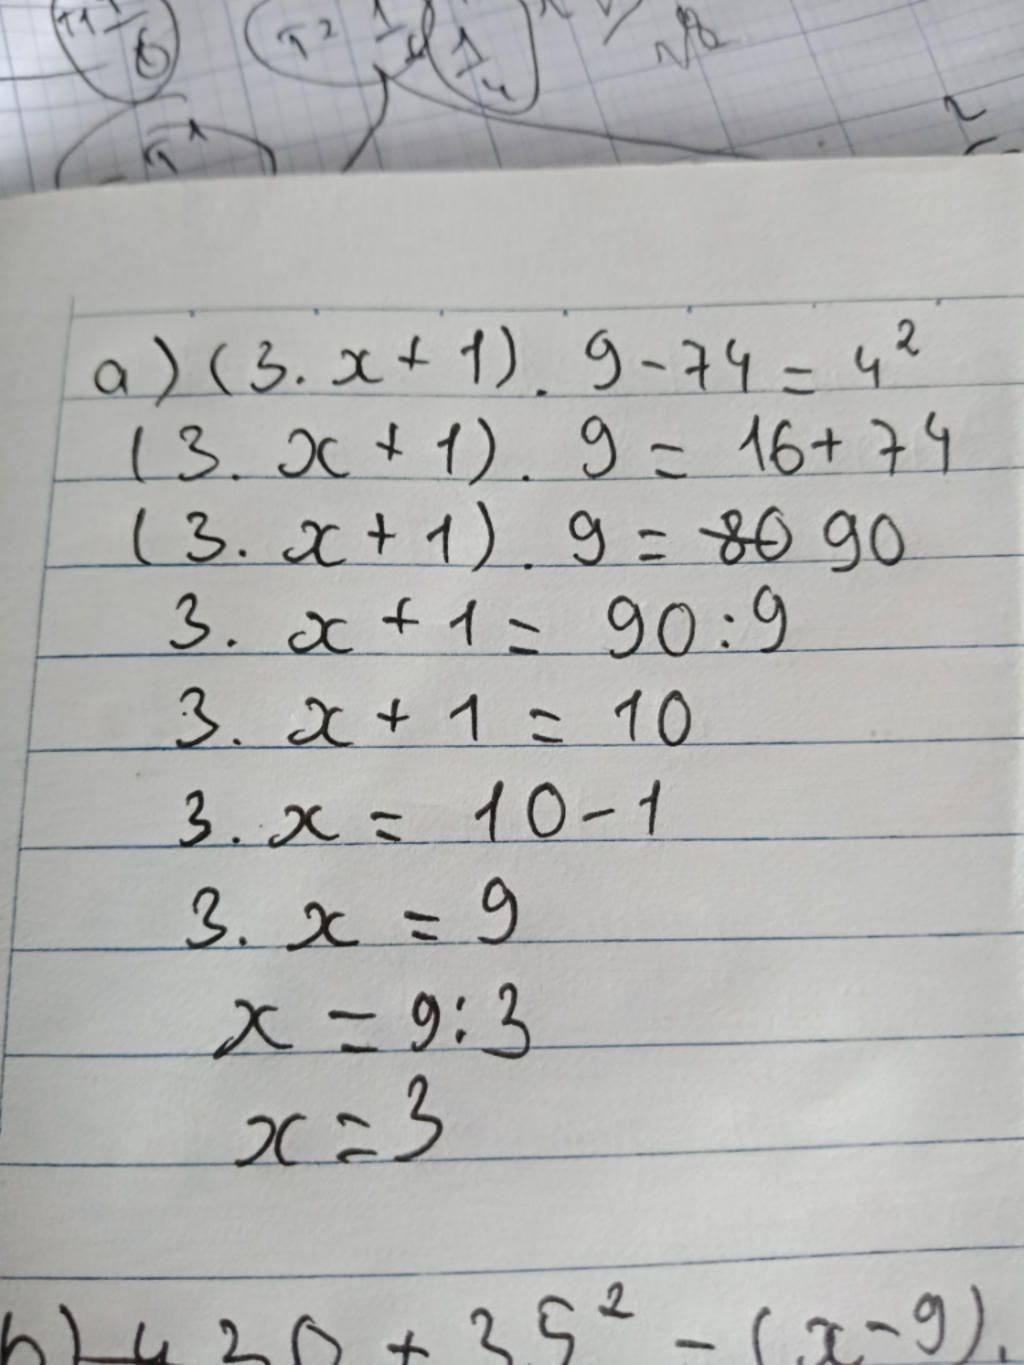 a) (3. x + 1). 9 - 74 = 4²
(3. x + 1). 9 = 16 + 74
(3. x + 1). 9 = 80 90
3. x + 1 = 90 : 9
3. x + 1 = 10
3. x = 10 - 1
3. x = 9
x = 9 : 3
x = 3
b) 420 + 35² - (x - 9).